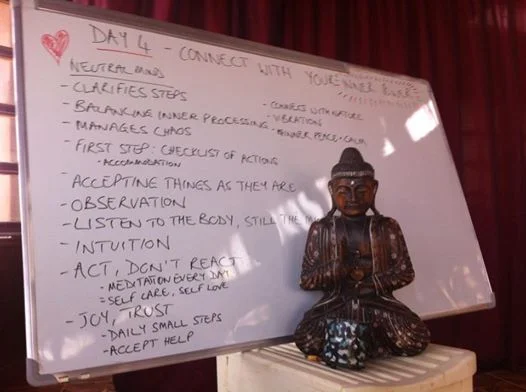 DAY 4 - CONNECT WITH YOUR INNER POWER
NEUTRAL MIND
- CLARIFIES STEPS
- BALANCING INNER PROCESSING
- MANAGES CHAOS
- CONNECT WITH NATURE
- VIBRATION
INNER PEACE + CALM
- FIRST STEP: CHECKLIST OF ACTIONS
• ACCOMMODATION
- ACCEPTING THINGS AS THEY ARE
- OBSERVATION
- LISTEN TO THE BODY, STILL THE
- INTUITION
- ACT, DON'T REACT
• MEDITATION EVERY DAY
= SELF CARE, SELF LOVE
- JOY, TRUST
- DAILY SMALL STEPS
- ACCEPT HELP